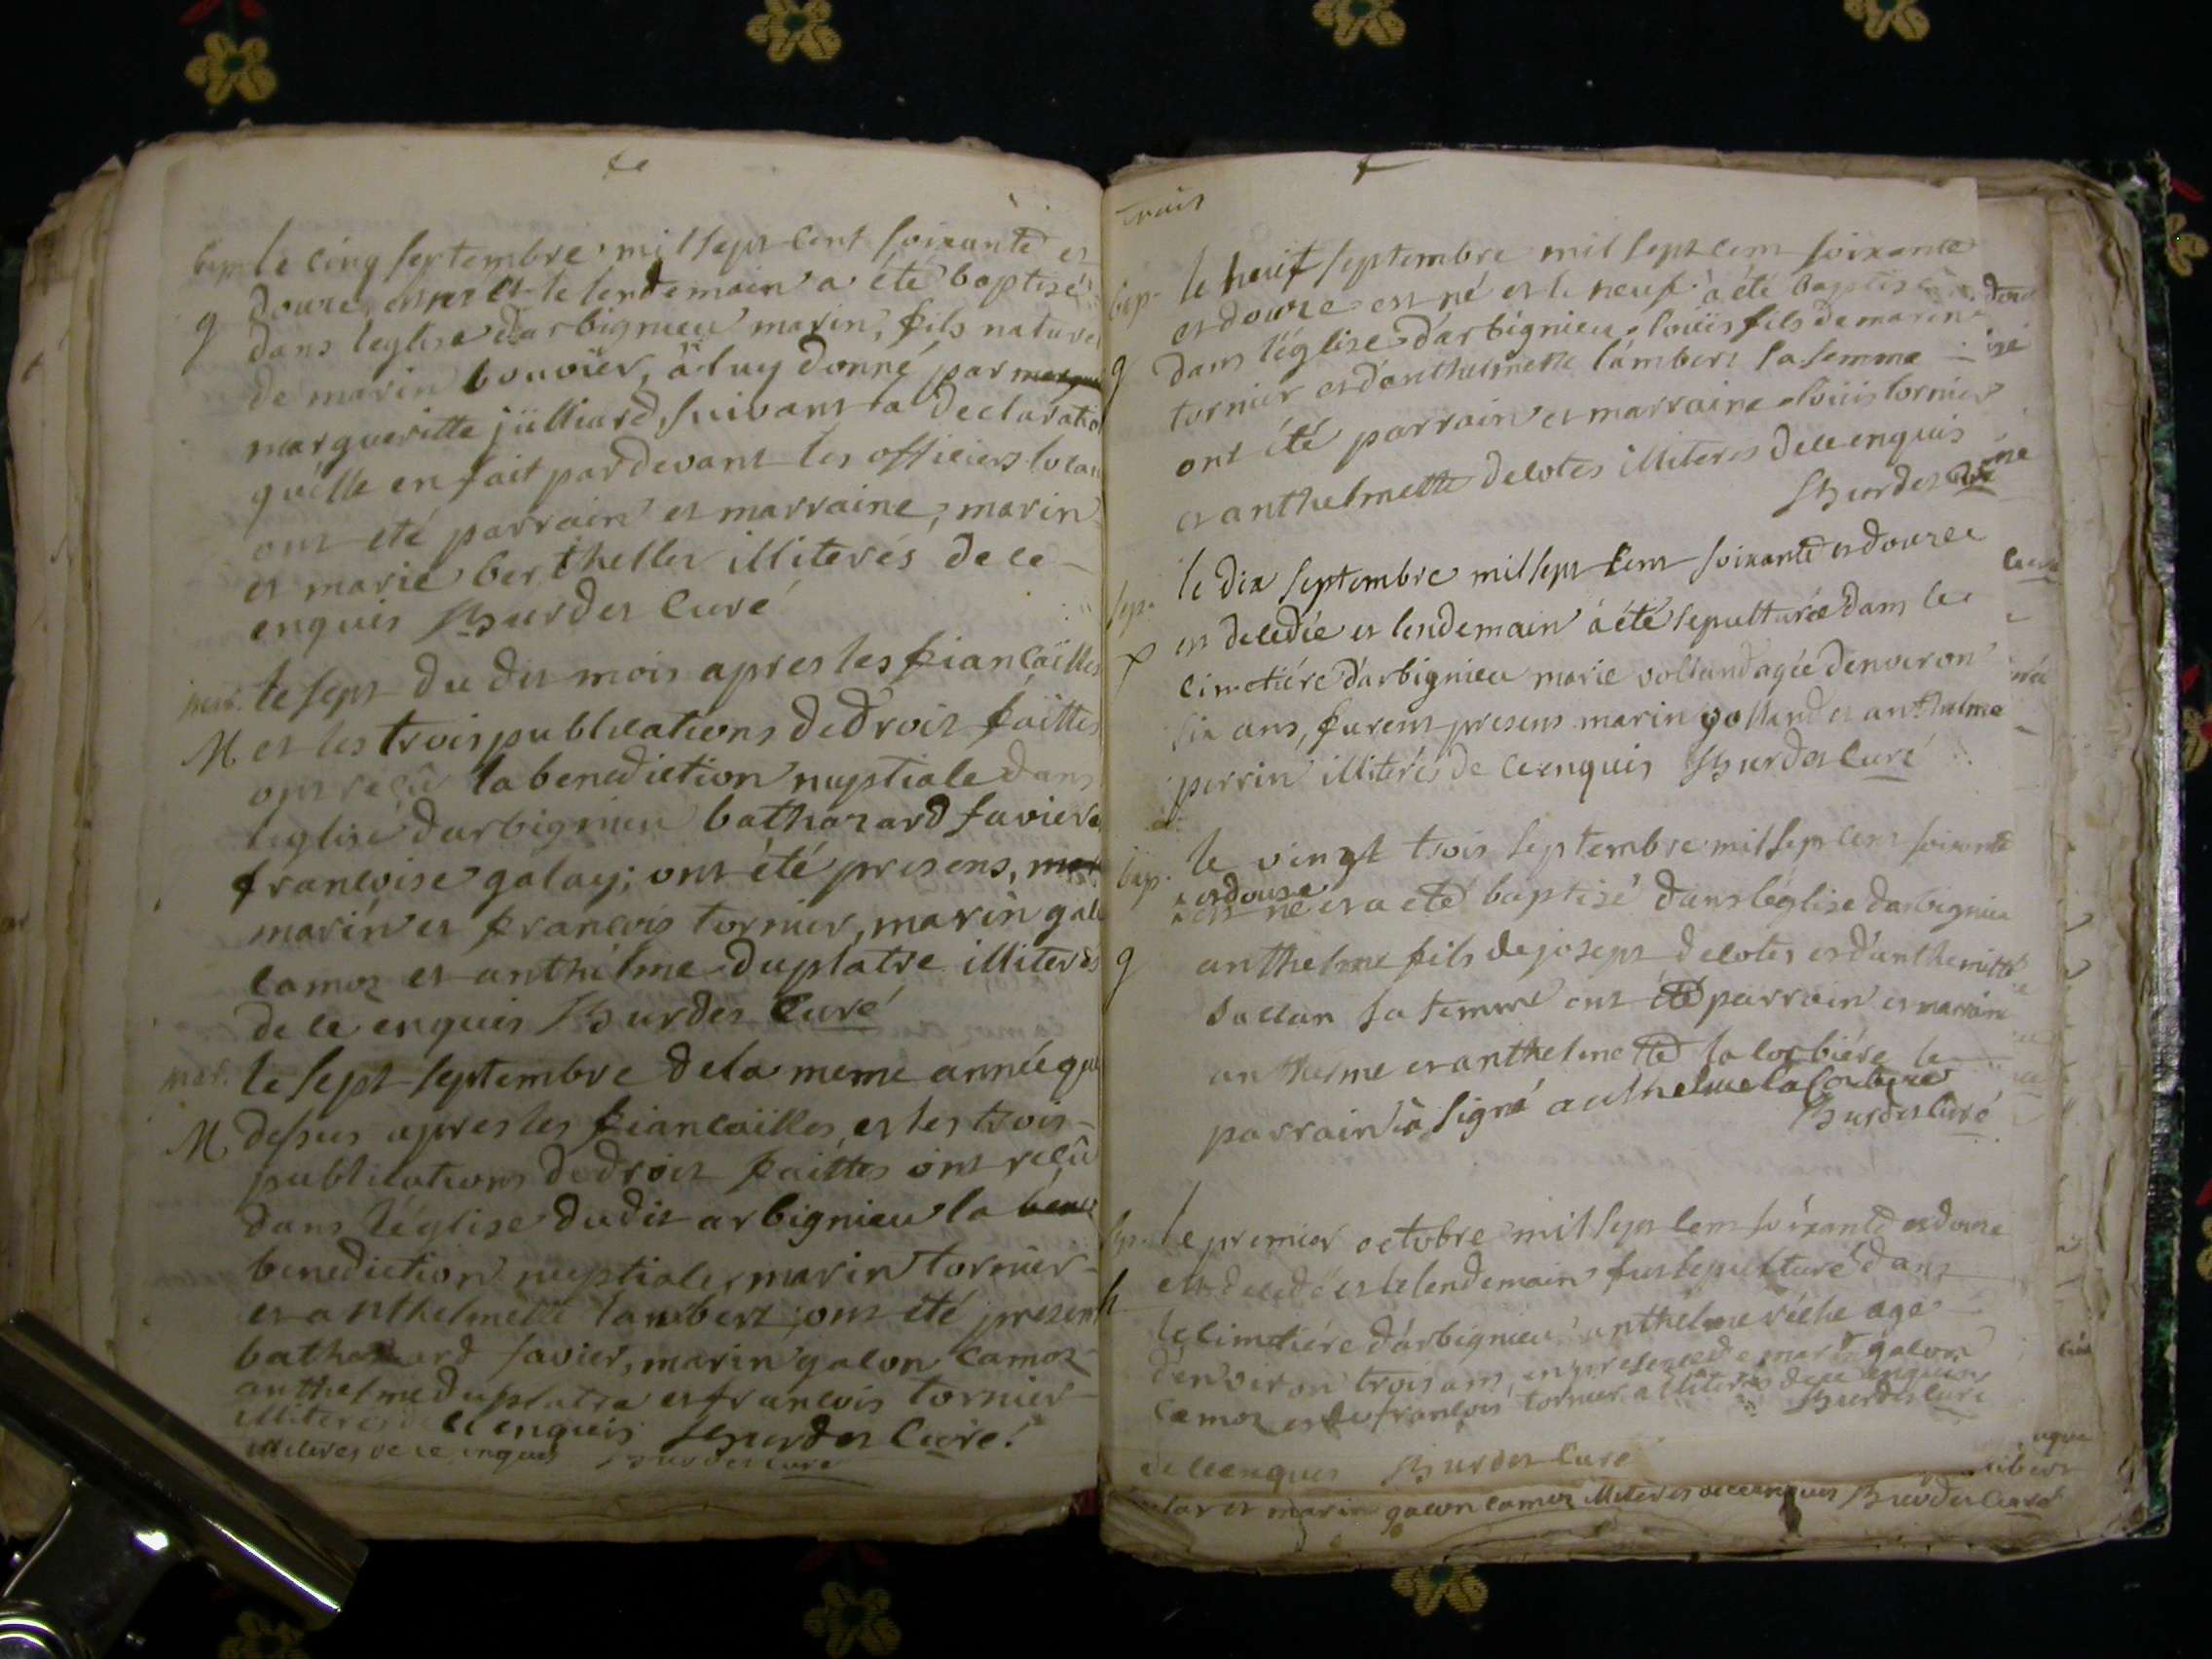 bap. le cinq septembre mil sept cent soixante et
g douze, est né et le lendemain a été baptisé
dans leglise darbignieu marin, fils naturel
de marin bouvier, à luy donné par
margueritte julliard, suivant la declaration
qu'elle en fait pardevant les officiers locau
ont été parrain et marraine, marin
et marie berthellet illiterés de ce
enquis Burdet Curé
mar. le sept du dit mois apres les fiancailles
M et les trois publications de droit faittes
ont reçu la benediction nuptiale dans
leglise darbignieu bathazard favier et
francoise galay; ont été presens,
marin et francois tornier, marin galon
camoz et anthelme duplatre illiterés
de ce enquis Burdet Curé
mar. le sept septembre de la meme année que
M dessus apres les fiancailles, et les trois
publications de droit faittes ont reçû
dans l'église dudit arbignieu la
benediction nuptiale, marin tornier
et anthelmette lambert; ont été presens
bathazard favier, marin galon camoz
anthelme duplatre et francois tornier
illiterés de ce enquis Burdet Curé
illiteres de ce enquis Burdet Curé
trois
bap. le neuf septembre mil sept cent soixante
et douze est né et le neuf a été baptisé
g dans l'église d'arbignieu, loüis fils de marin
tornier et d'anthelmette lambert sa femme
ont été parrain et marraine loüis tornier
et anthelmette delotes illiteres de ce enquis
Burdet Curé
sep. le dix septembre mil sept cent soixante et douze
est decedée et lendemain a été sepulturée dans le
cimetiére d'arbignieu marie volland agée denviron
six ans, furent presens marin volland et anthelme
perrin illiterés de ce enquis Burdet Curé
bap. le vingt trois septembre mil sept cent soixante
et douze
est né et a eté baptisé dans léglise darbignieu
g anthelme fils de josept delotes et d'anthelmette
sa femme ont été parrain et marraine
anthelme et anthelmette la corbiére le
parrain à signé anthelme la Corbiere
Burdet Curé
sep. le premier octobre mil sept cent soixante et douze
est decedé et le lendemain fut sepulturé dans
le cimetiére d'arbignieu anthelme réche agé
d'environ trois ans, en presence de marin galon
camoz et de francois tornier illiterés de ce enquis Burdet Curé
de ce enquis Burdet Curé
et marin galon camoz illiteres de ce enquis Burdet Curé